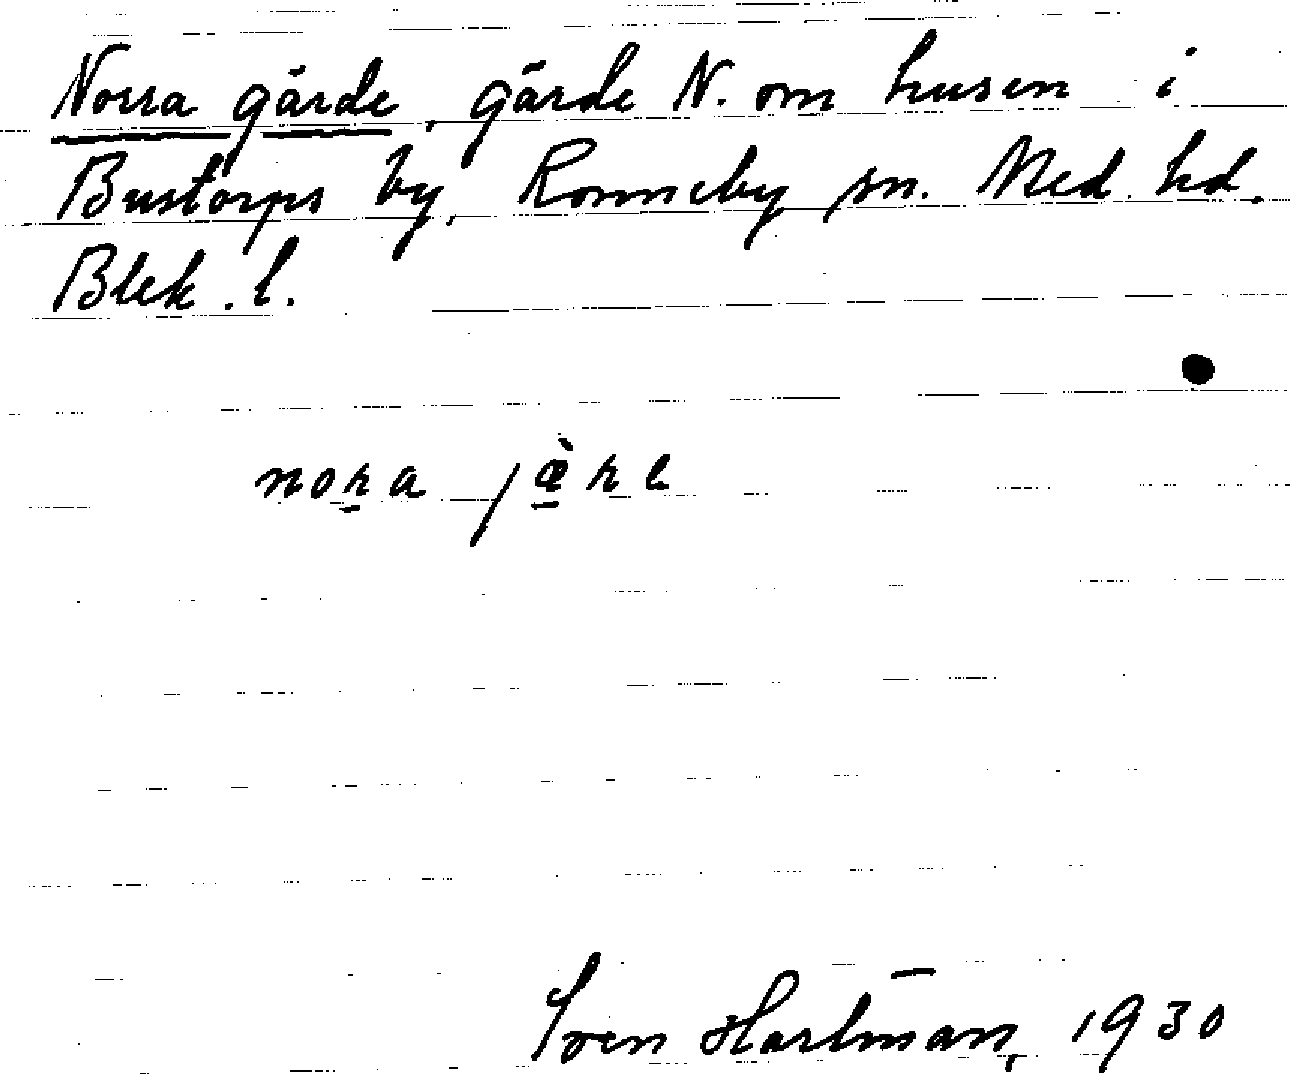 Norra gärde, gärde N. om husen i
Bustorps by, Ronneby sn. Med. hd.
Blek. l.
nora jæ̀re
Sven Hartman, 1930